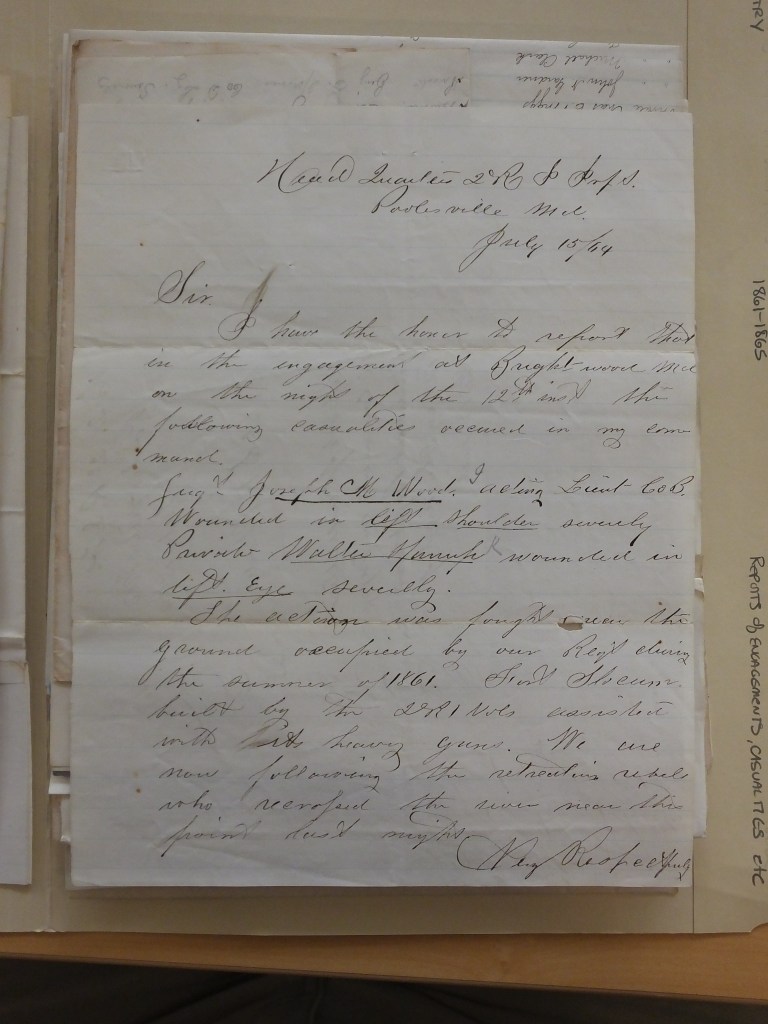 Michael Clark
John H Gardner
Head Quarters 2d R I Inf.
Poolesville Md.
July 15/64
Sir.
I have the honor to report that
in the engagement at Brightwood Md
on the night of the 12th inst the
following casualities occured in my com
mand.
Joseph M Wood. acting Lieut Co B.
Wounded in left shoulder severly
Private Walter wounded in
left. Eye severlly.
The action was fought near the
ground occupied by our Regt during
the summer of 1861. Fort Slocum
built by the 2d R I Vols assisted
with its heavy guns. We are
now following the retreating rebels
who recrossed the river near this
point last night
Very Respectfully
1861-1865
REPORTS of ENGAGEMENTS, CASUALTIES etc